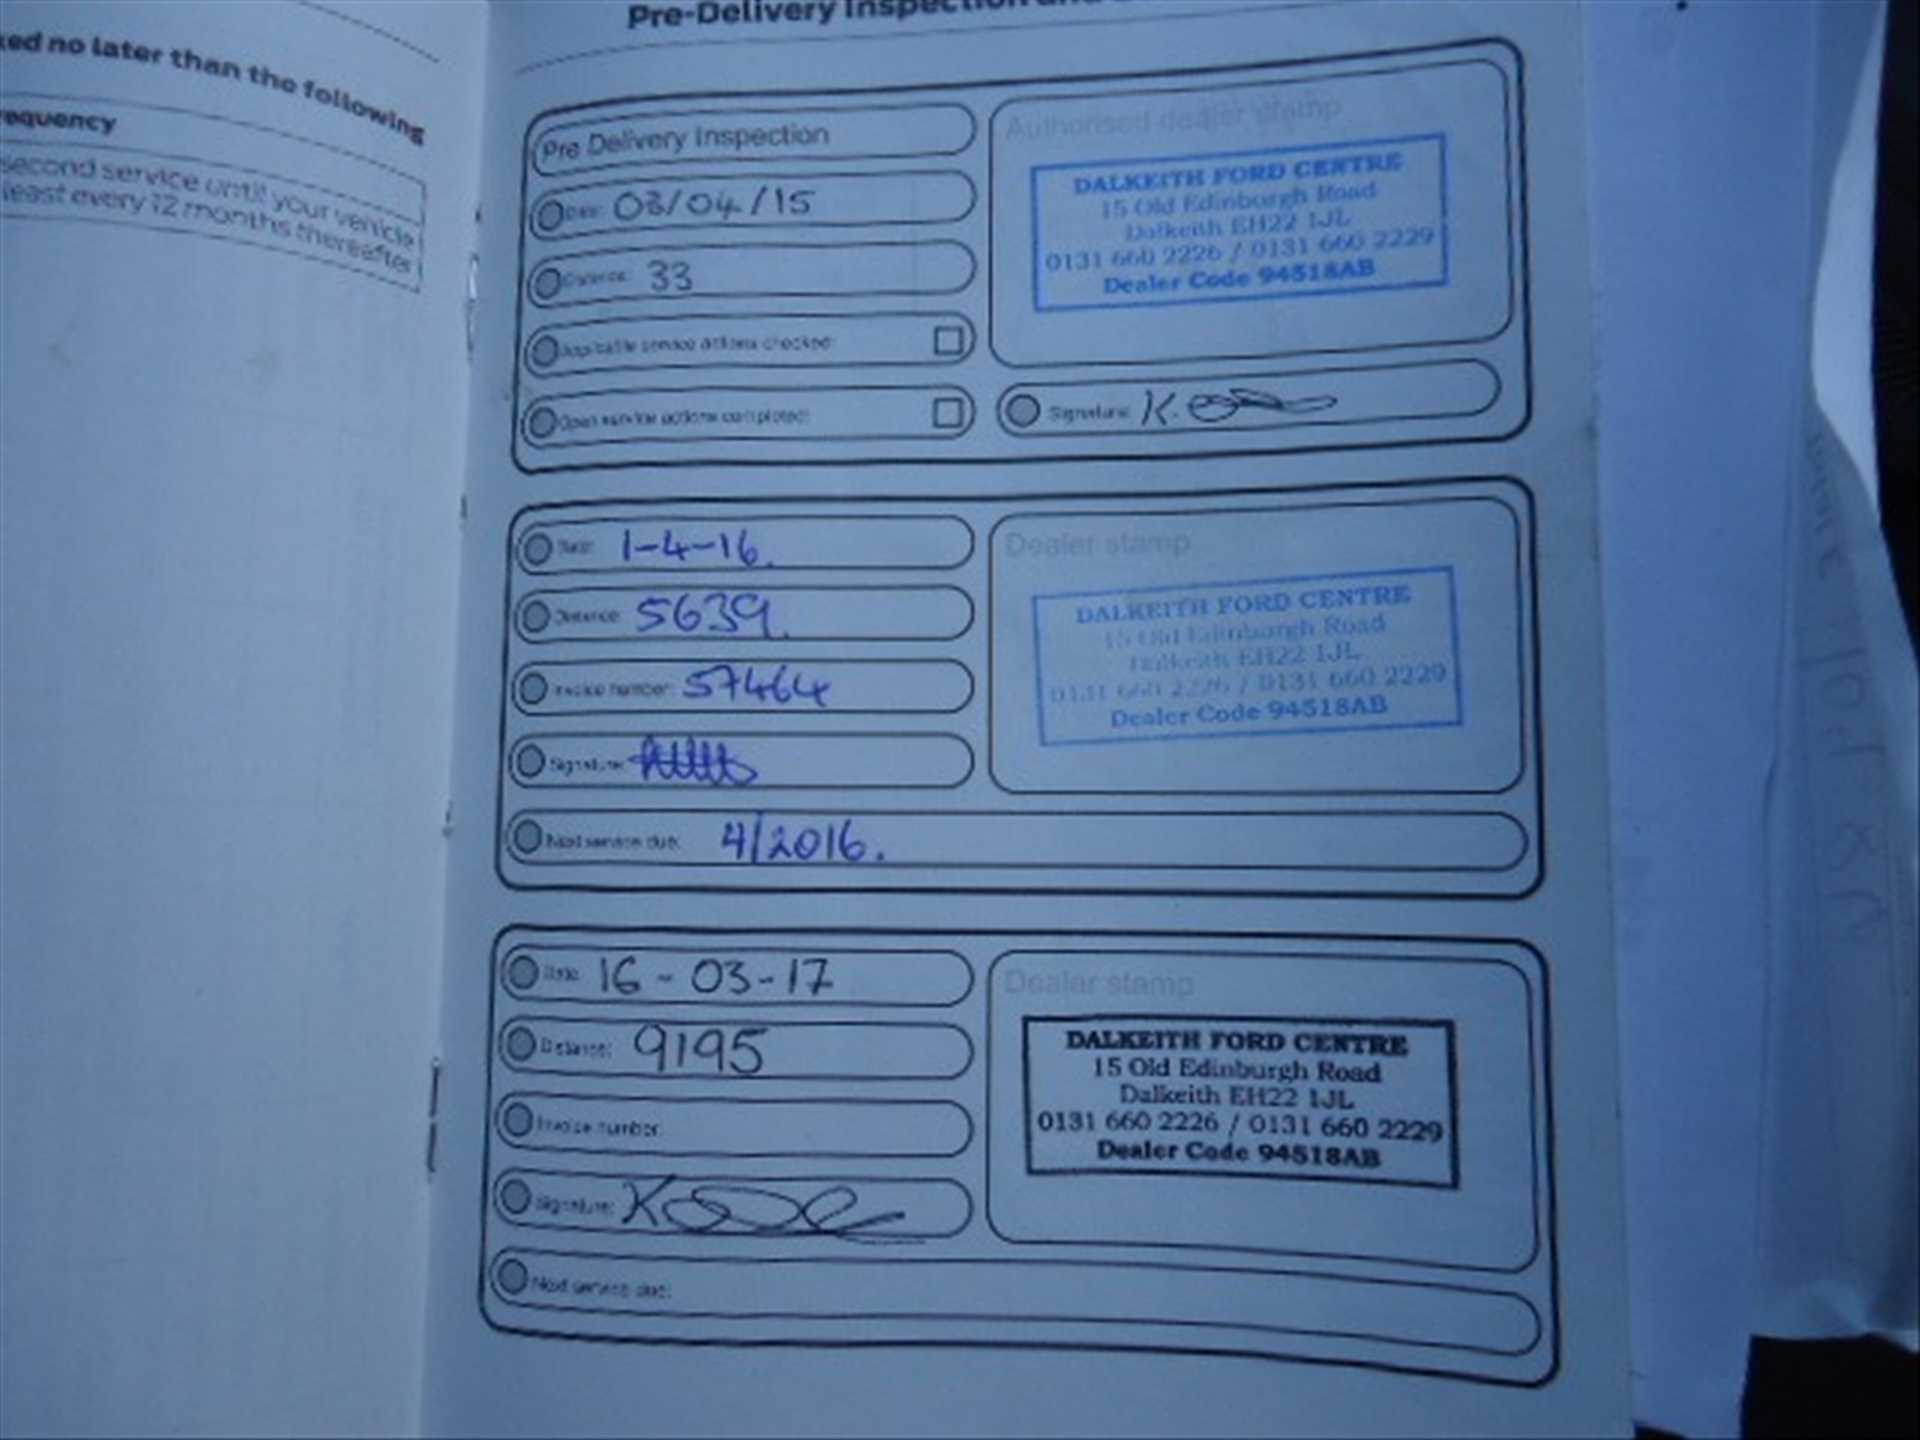 ked no later than the following
requency
second service until your vehicle
least every 12 months thereafter
Pre-Delivery Inspection and
Pre Delivery Inspection
Date: 03/04/15
Distance: 33
Applicable service actions checked:
Open service actions completed:
Authorised dealer stamp
DALKEITH FORD CENTRE
15 Old Edinburgh Road
Dalkeith EH22 1JL
0131 660 2226 / 0131 660 2229
Dealer Code 94518AB
Signature:
Date: 1-4-16.
Distance: 5639.
Invoice number: 57464
Signature:
Next service due: 4/2016.
Dealer stamp
DALKEITH FORD CENTRE
15 Old Edinburgh Road
Dalkeith EH22 1JL
0131 660 2226 / 0131 660 2229
Dealer Code 94518AB
Date: 16-03-17
Distance: 9195
Invoice number:
Signature:
Next service due:
Dealer stamp
DALKEITH FORD CENTRE
15 Old Edinburgh Road
Dalkeith EH22 1JL
0131 660 2226 / 0131 660 2229
Dealer Code 94518AB